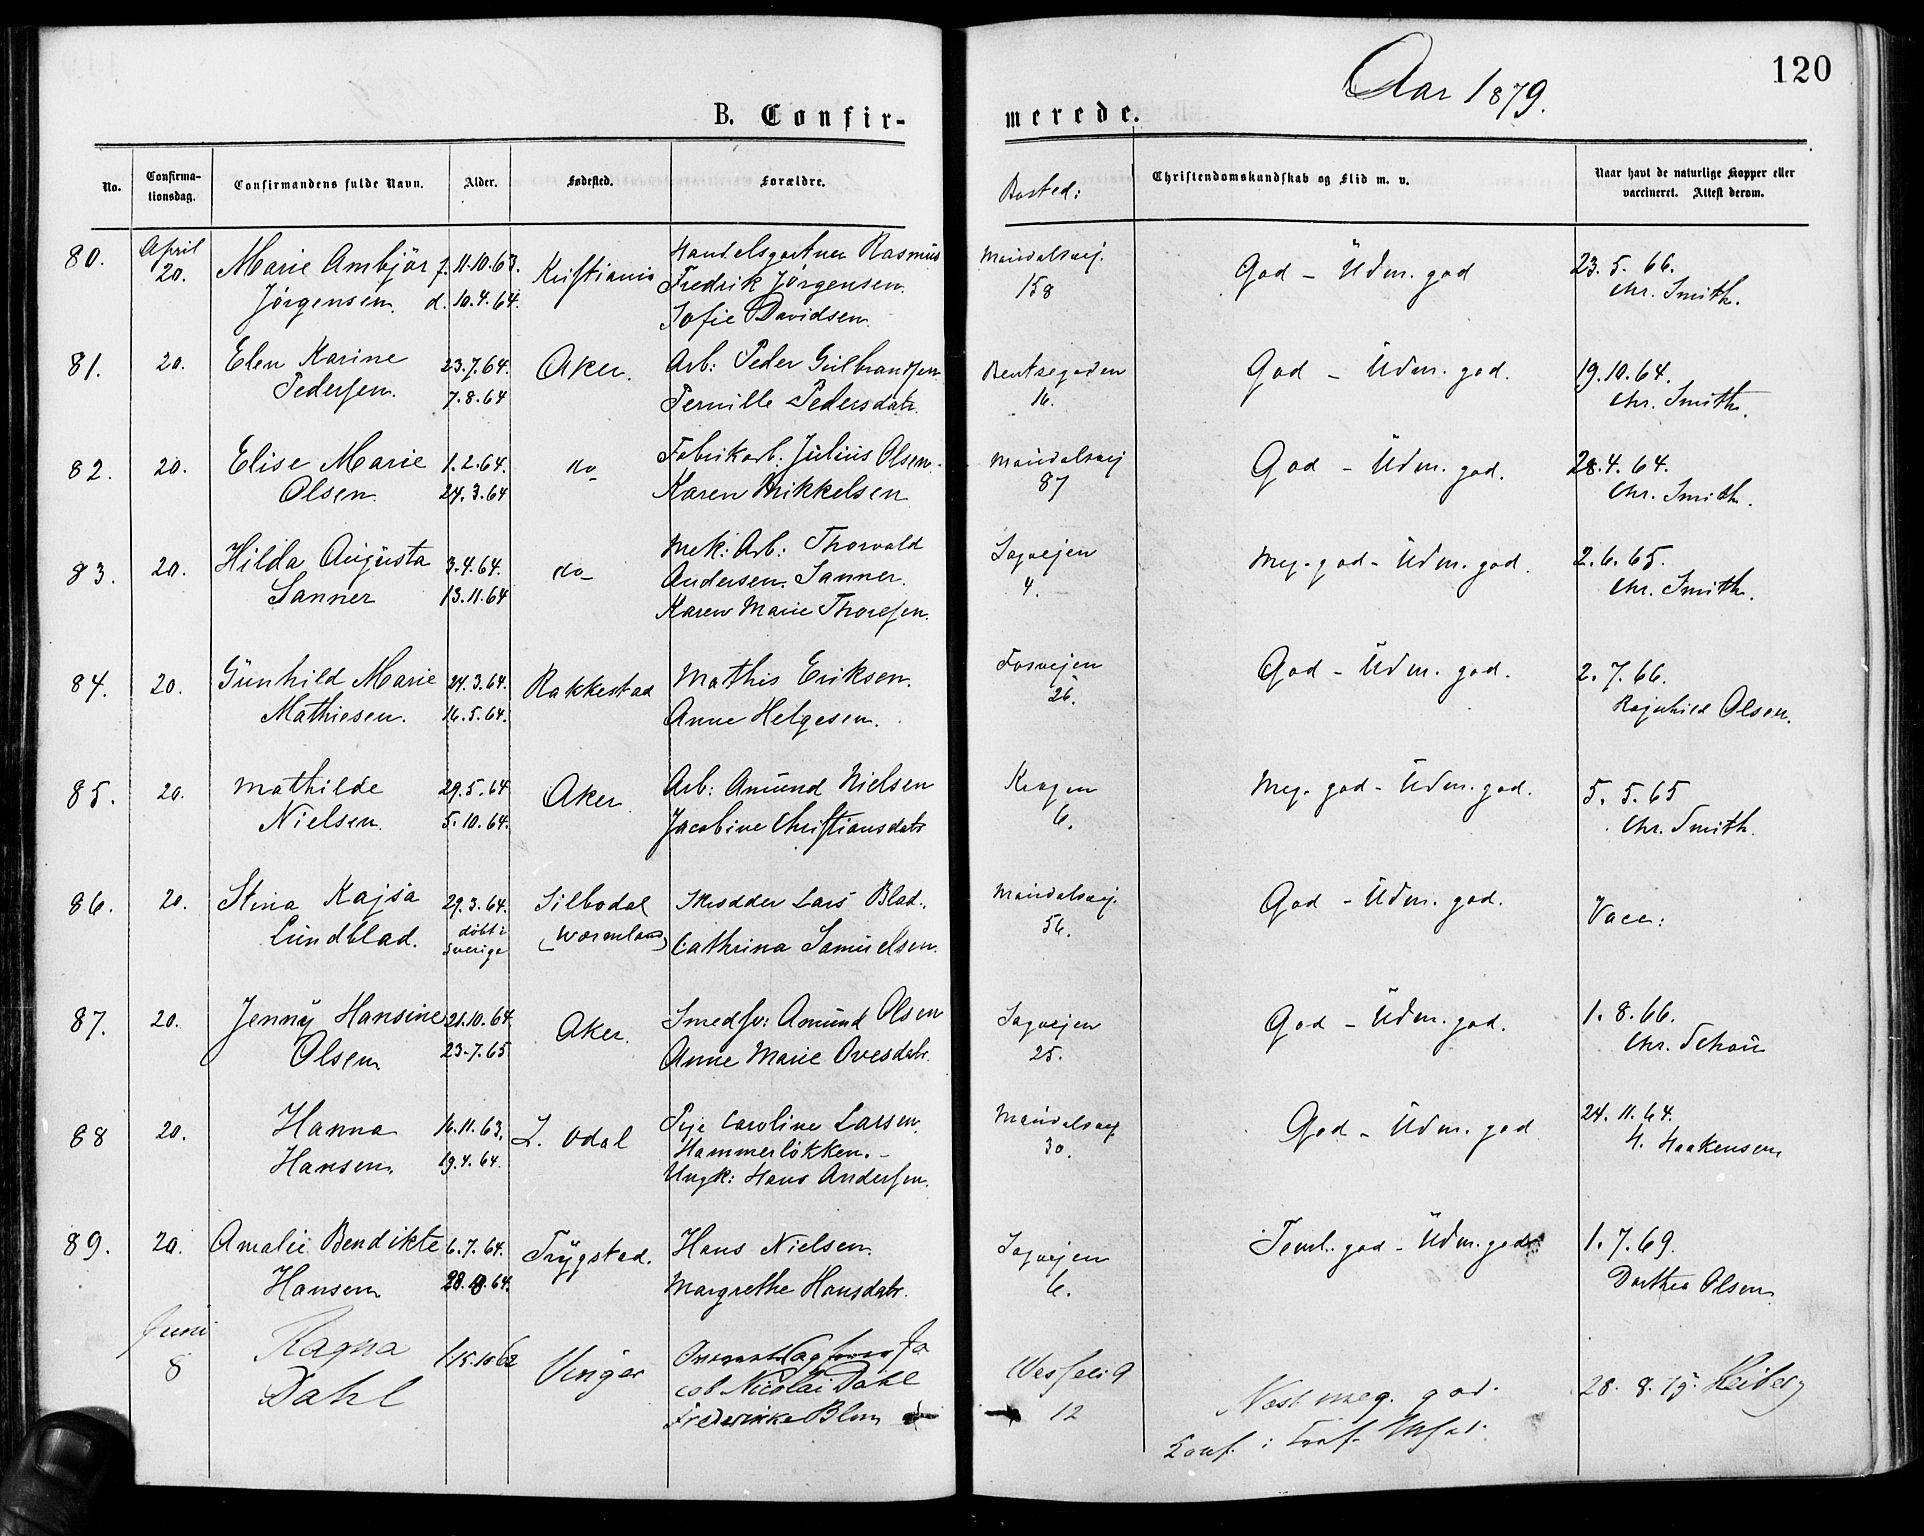 Aar 1879.
120
B. Confir-
merede.
No.
Confirma-
tionsdag.
Confirmandens fulde Navn.
Alder.
Fødested.
Forældre.
Bosted:
Christendomskundskab og Flid m. v.
Naar havt de naturlige Kopper eller
vaccineret. Attest derom.
80. April 20. Marie Ambjør f. 11.10.63. Kristiania Handelsgartner Rasmus
Jørgensen d. 10.4.64. Fredrik Jørgensen.
Sofie Davidsen.
Maridalsvej.
158
God - Üdm. god
23. 5. 66.
Chr. Smith.
81. 20. Elen Karine 23.7.64. Aker. Arb: Peder Gulbrandsen
Pedersen. 7.8.64 Pernille Pedersdatr.
Bentsegaden
16.
God - Üdm. god.
19.10.64.
Chr. Smith.
82. 20. Elise Marie 1.2.64. do Fabrikarb. Julius Olsen.
Olsen. 24.3.64 Karen Mikkelsen
Maridalsvej
87
God - Üdm. god.
28.4.64.
Chr. Smith.
83. 20. Hilda Augusta 3.4.64. do Mek: Arb: Thorvald
Sanner 13.11.64 Andersen Sanner.
Karen Marie Thoresen.
Sagvejen
4.
Meg. god - Üdm. god.
2.6.65.
Chr. Smith.
84. 20. Gunhild Marie 24.3.64. Rakkestad Mathis Eriksen.
Mathiesen. 16.5.64. Anne Helgesen.
Fosvejen
26.
God - Üdm. god.
2.7.66.
Ragnhild Olsen.
85. 20. Mathilde 29.5.64 Aker Arb: Amund Nielsen
Nielsen. 5.10.64. Jacobine Christiansdatr
Kragen
6.
Meg. god - Üdm. god.
5. 5. 65
Chr. Smith.
86. 20. Stina Kajsa 29.3.64. Silbodal Skrædder Lars Blad.
Lundblad. døbt i (Wormland) Cathrina Samuelsen.
Sverige
Maridalsvej.
56.
God - Üdm. god.
Vacc:
87. 20. Jenny Hansine 21.10.64. Aker. Smedsv: Amund Olsen
Olsen 23.7.65 Anne Marie Ovesdatr.
Sagvejen
25.
God - Üdm. god.
1. 8. 66.
Chr. Schou
88 20. Hanna 16.11.63. S. Odal Pige Caroline Larsen.
Hansen. 19.4.64. Hammerløkken. -
Ungk: Hans Andersen.
Maridalsvej
30.
God - Üdm. god
24. 11. 64.
H. Haakensen
89. 20. Amalie Bendikte 6.7.64. Trygstad. Hans Nielsen
Hansen 64. Margrethe Hansdatr.
Sagvejen
6.
Teml. god - Üdm. god
1. 7. 69.
Dorthea Olsen
Juni 8 Ragna 15.10 62 Vinger Ja
Dahl cob Nicolai Dahl
Frederikke Blom
12
Næst meg. god.
Conf. i
28. 8. 75. Heiberg